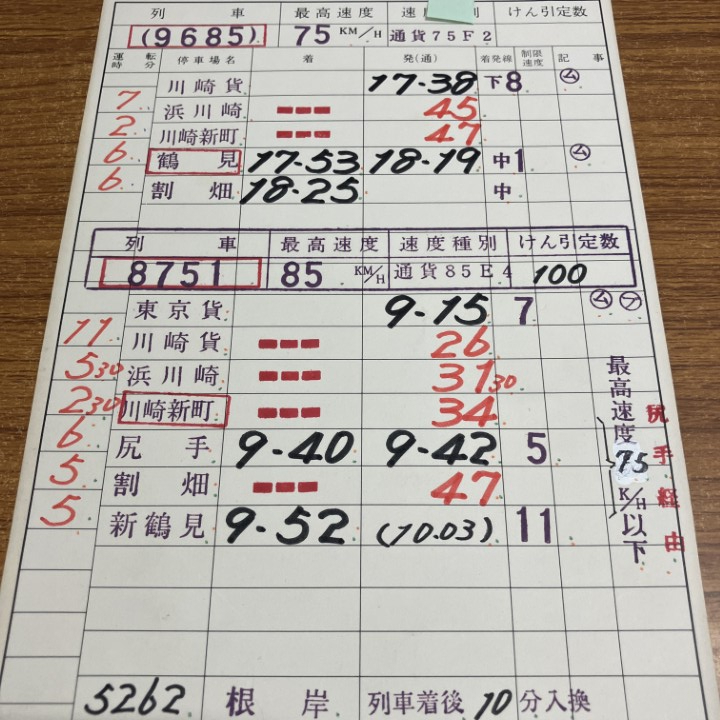 列 車 最高速度 速度 別 けん引定数
(9685) 75 KM/H 通貨75F2
運転時分 停車場名 着 発(通) 着発線 制限速度 記事
川崎貨 17-38 下8 ㋰
7 浜川崎 45
2 川崎新町 47
6 鶴見 17-53 18-19 中1 ㋰
6 割畑 18-25 中
列 車 最高速度 速度種別 けん引定数
8751 85 KM/H 通貨85E4 100
東京貨 9-15 7 ㋰ ㋐
11 川崎貨 26
5 30 浜川崎 31 30
2 30 川崎新町 34
6 尻手 9-40 9-42 5
5 割畑 47
5 新鶴見 9-52 (10.03) 11
最高速度75K/H以下
尻手経由
5262 根岸 列車着後10分入換